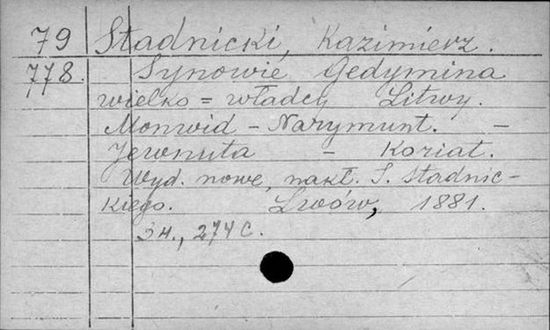 79 Stadnicki, Kazimierz.
778. Synowie Gedymina
wielko = władcy Litwy.
Monwid - Narymunt. -
Jewnuta - Koriat.
Wyd. nowe, nakł. S. Stadnic-
kiego. Lwów, 1881.
274 с.